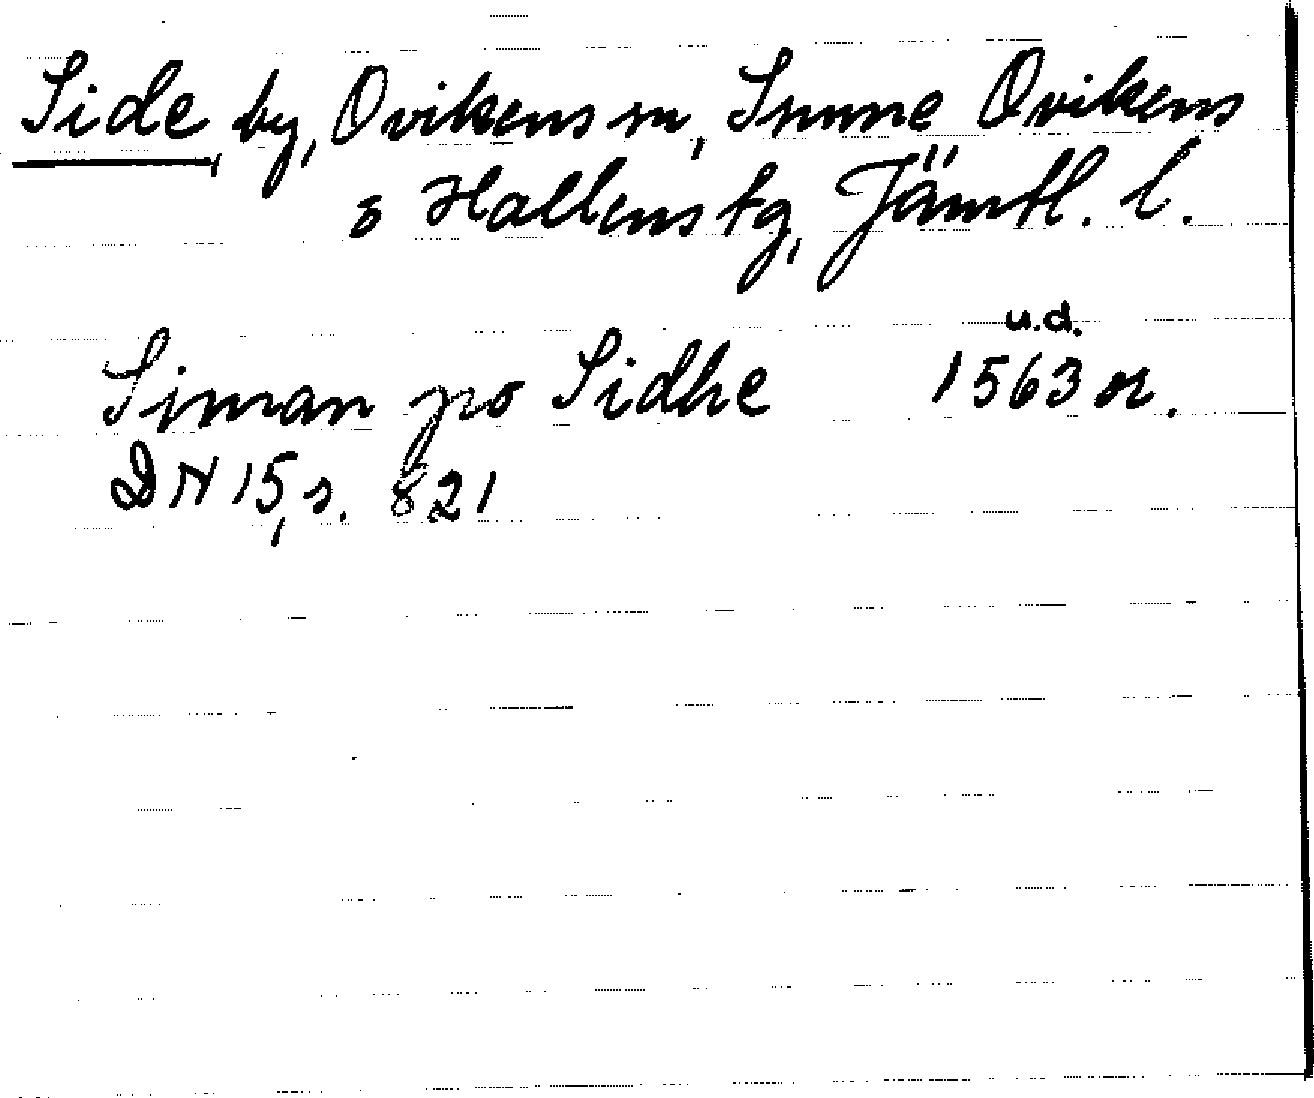 Side, by, Ovikens sn, Sunne Ovikens
o Hallens tg, Jämtl. l.
u.d.
Siman po Sidhe 1563 or.
DN 15, s. 821